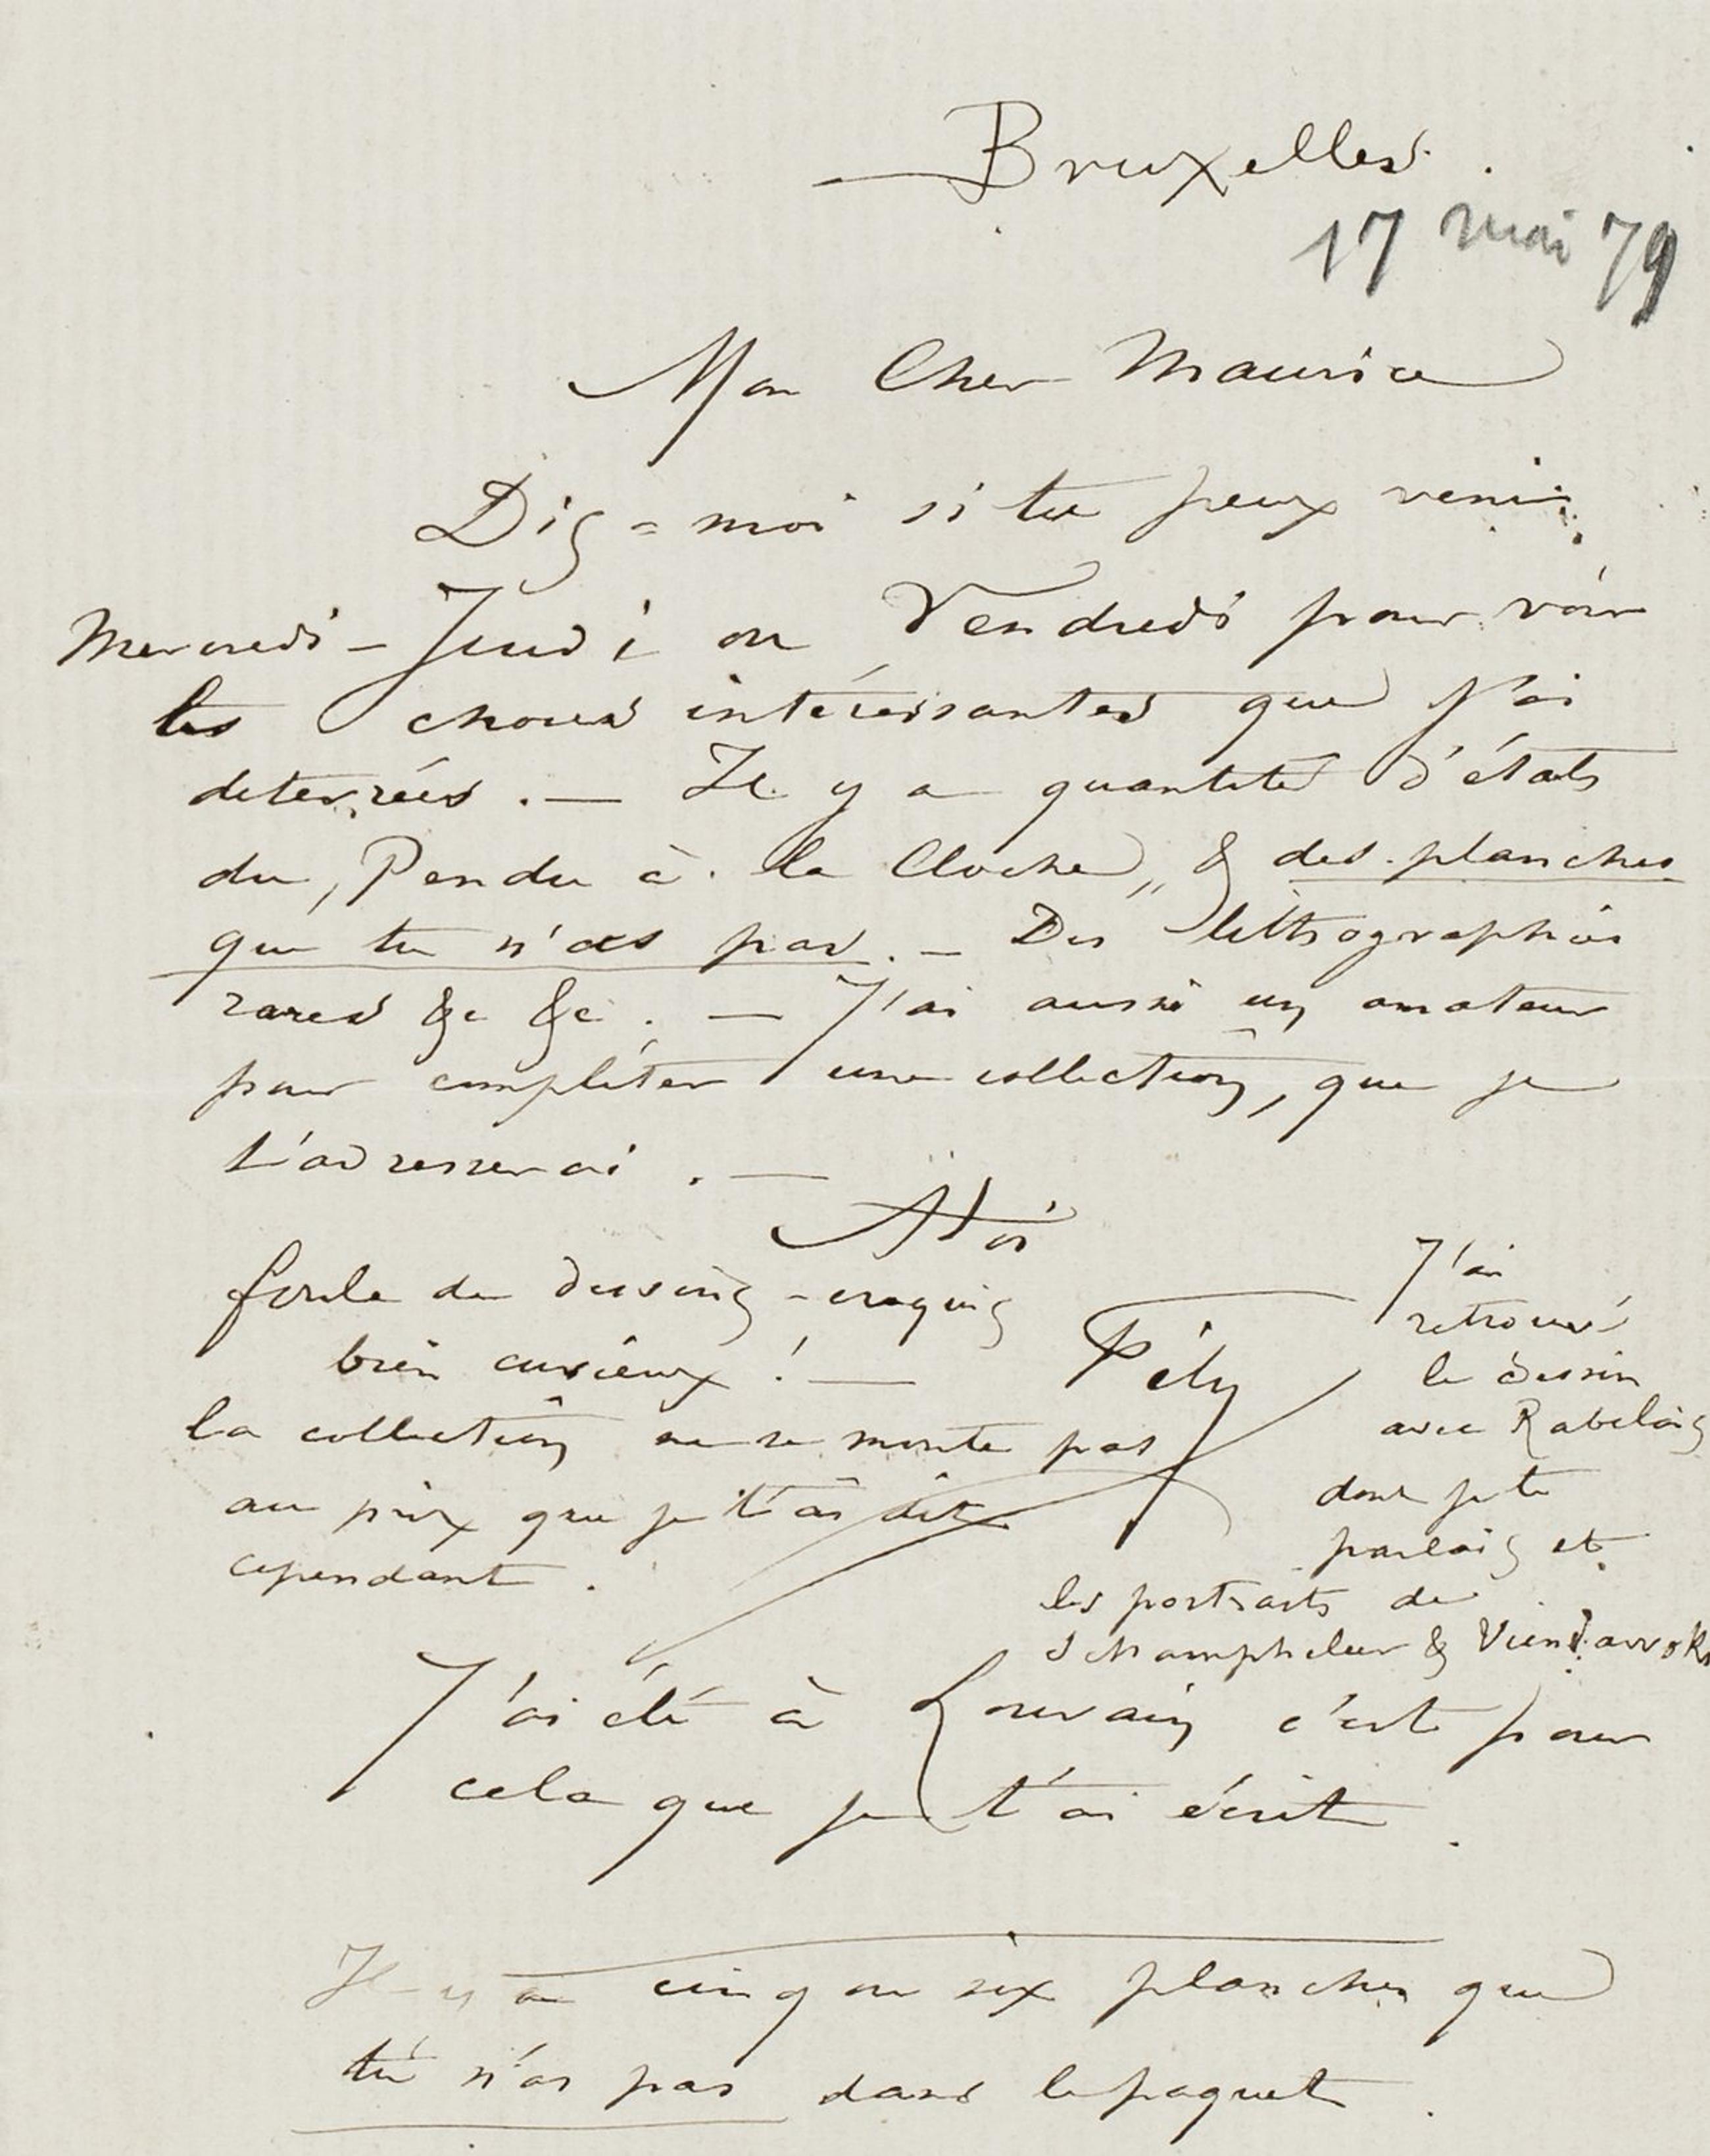 Bruxelles.
17 mai 79
Mon Cher Maurice
Dis=moi si tu peux venir
Mercredi – Jeudi ou Vendredi pour voir
les choses intéressantes que j'ai
deterrées. — Il y a quantité d'états
du „Pendu à la Cloche„ & des planches
que tu n'as pas. – Des lithographies
rares &c &c. — J'ai aussi un amateur
pour compléter une collection, que je
t'adresserai. —
A toi
foule de dessins – croquis
bien curieux! —
Fély
la collection ne se monte pas
au prix que je t'ai dit
cependant.
J'ai
retrouvé
le dessin
avec Rabelais
dont je te
parlais et
les portraits de
Schampheleer &
J'ai été à Louvain c'est pour
cela que je t'ai écrit.
Il y a cinq ou six planches que
tu n'as pas dans le paquet.